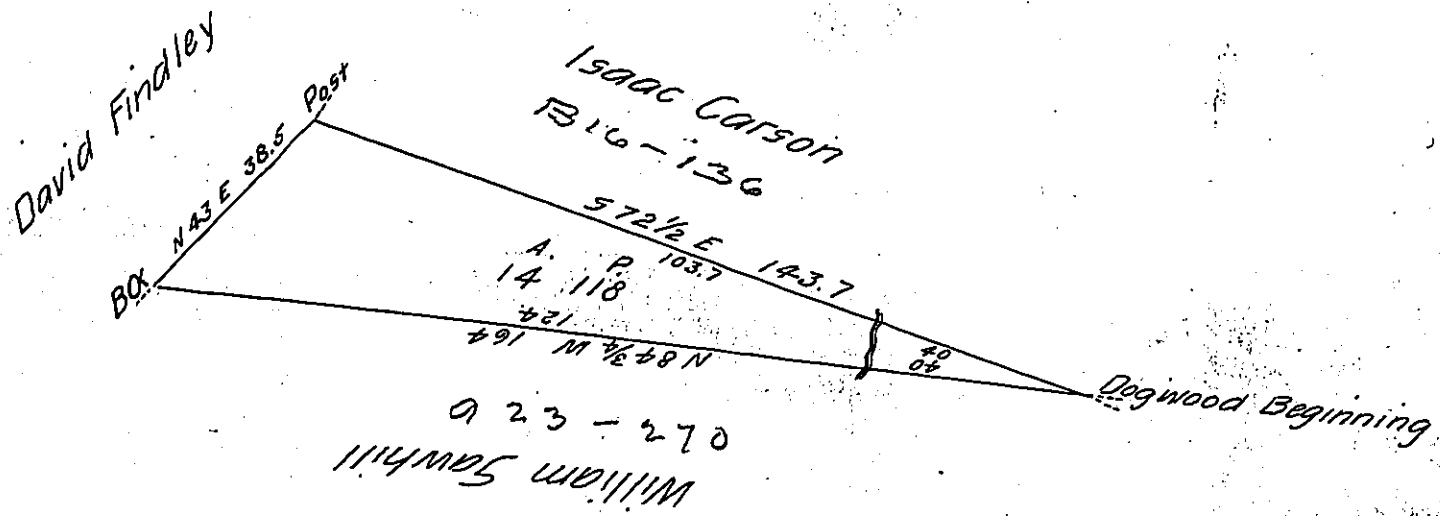 David Findley
N 43 E 38.5
Post
Isaac Carson
B16-136
S 72 1/2 E 143.7
103.7
A. P.
14 118
BOX
124
N 84 3/4 W 164
40
40
Dogwood Beginning
A23-270
William Sawhill